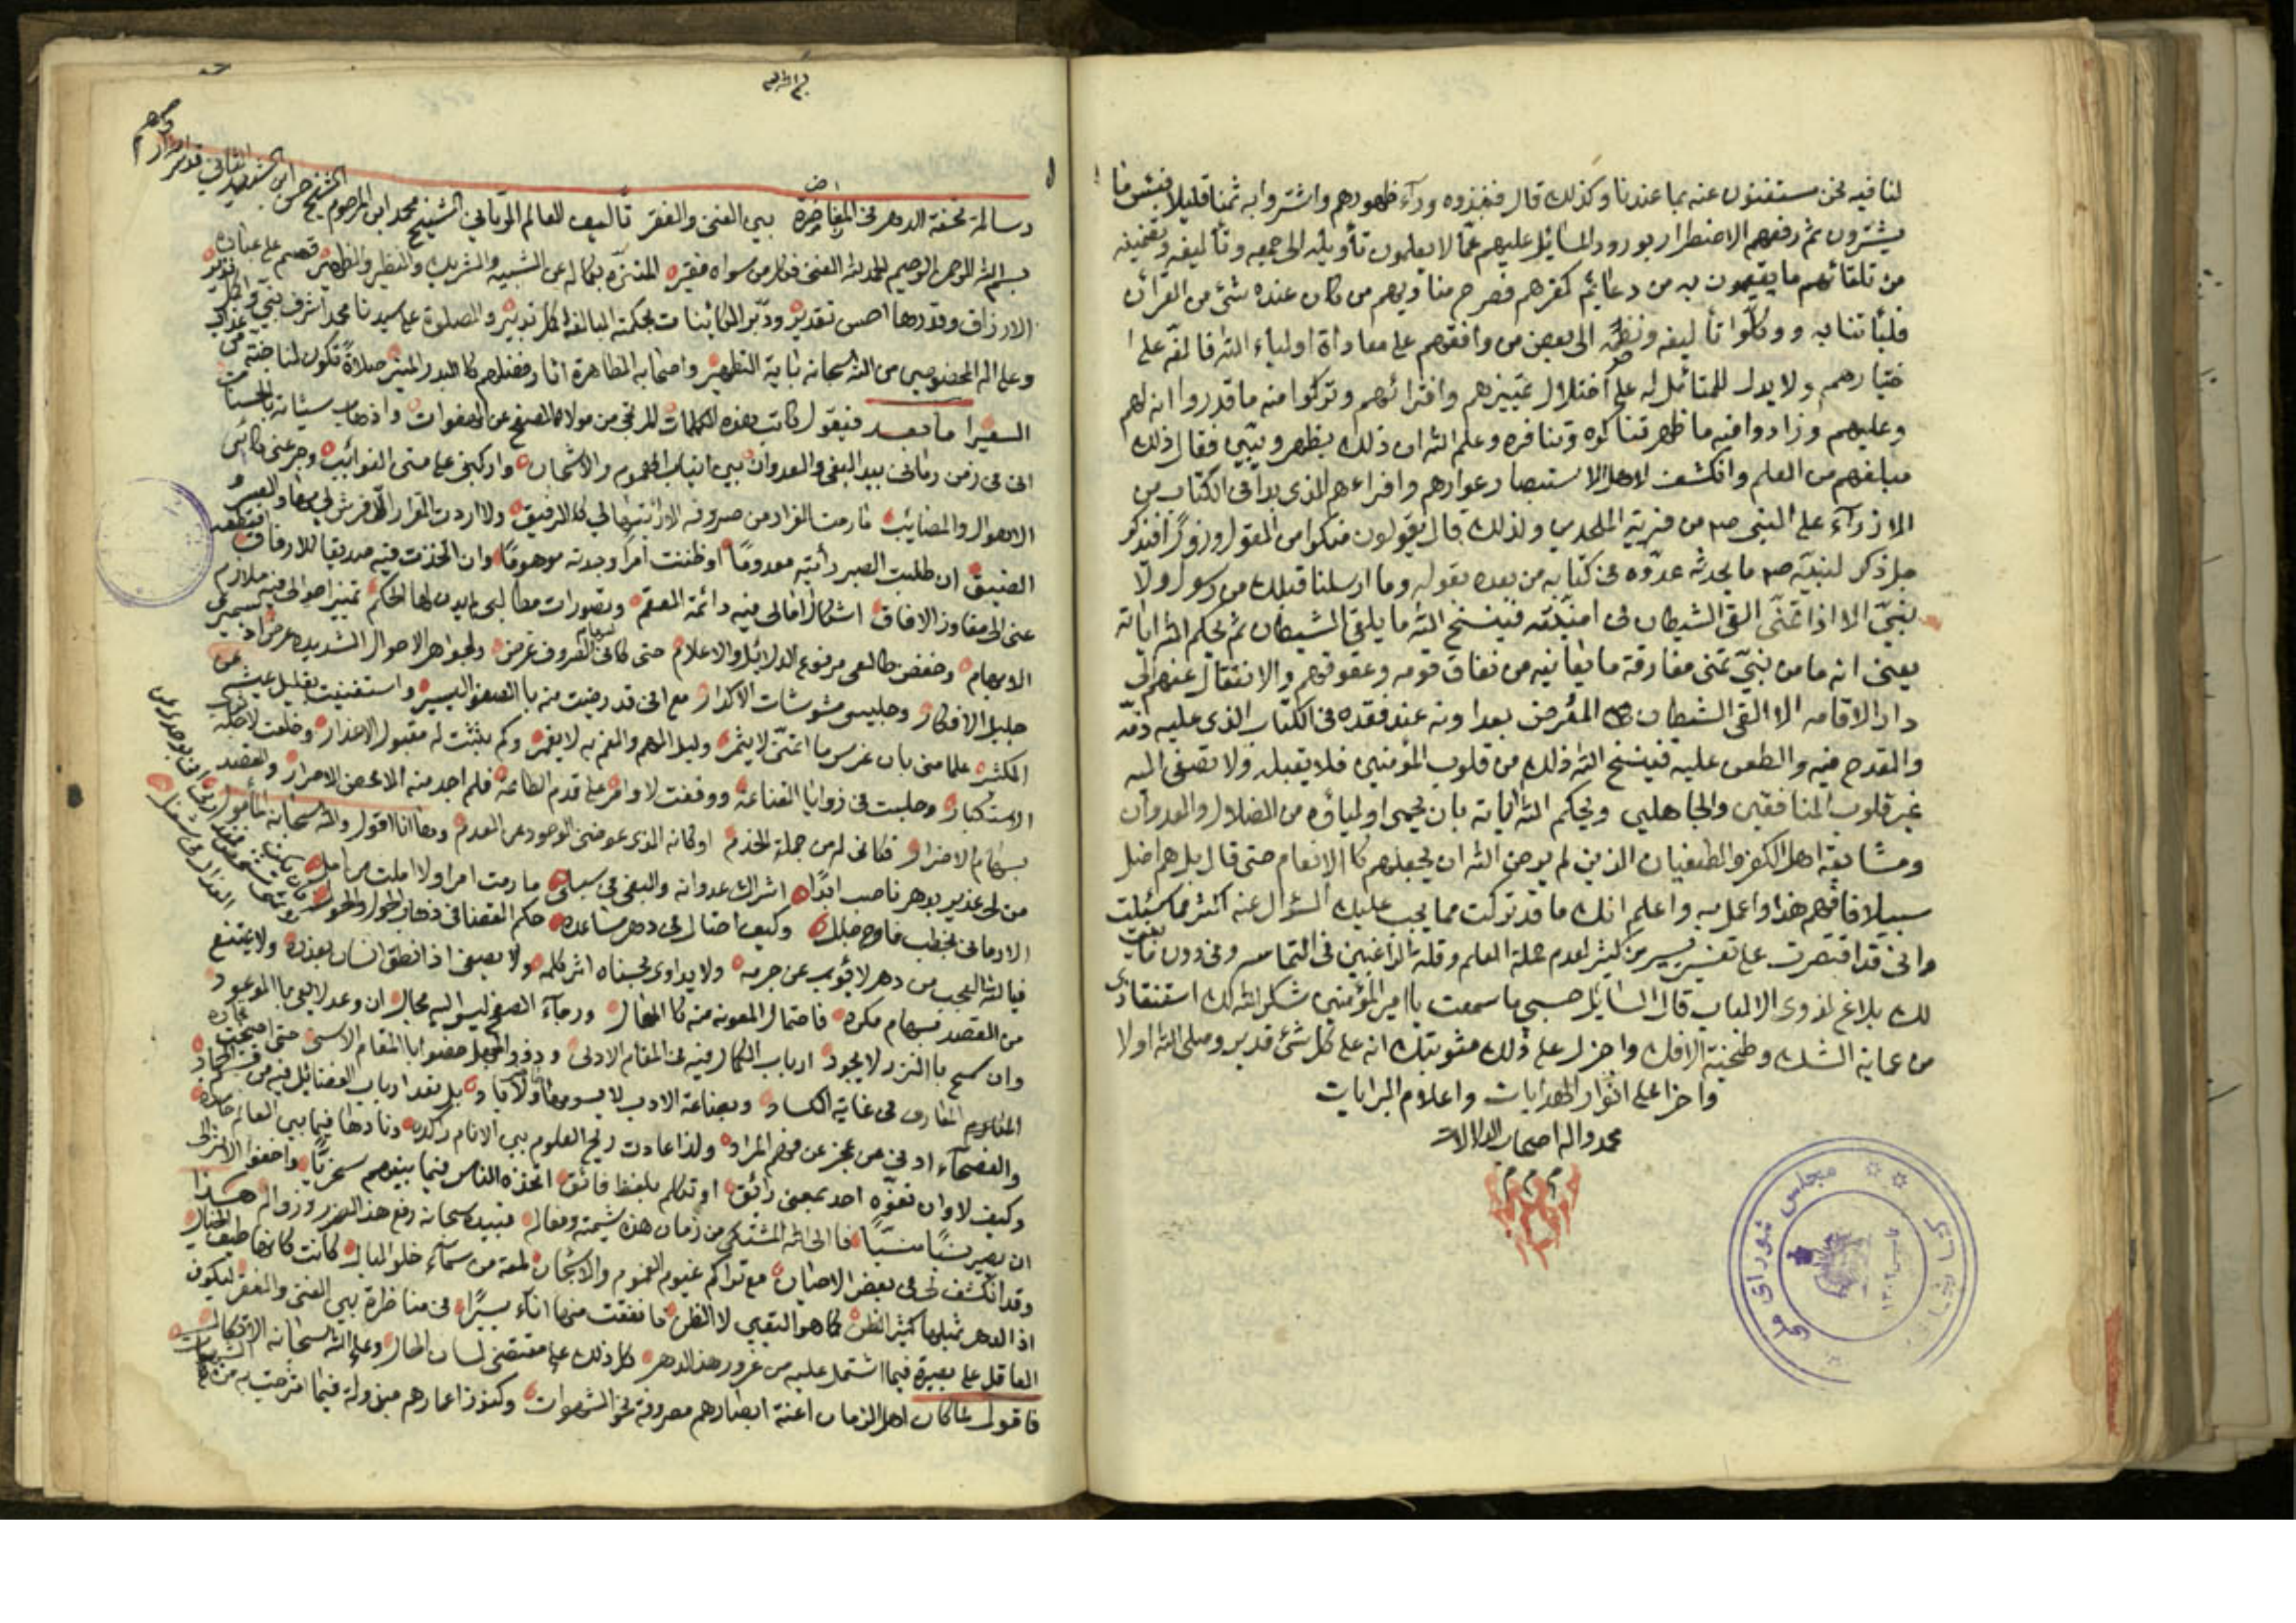 لنا فيه نحن مستغنون عنه بما عندنا وكذلك قال فنبذوه ورآء ظهورهم واشتروا به ثمنا قليلا فبئس ما
يشترون ثم دفعهم الاضطرار بورود المسائل عليهم عما لا يعلمون تأويله الى جمعه وتأليفه وتضمينه
من تلقائهم ما يقيمون به من دعائم كفرهم فصرح مناديهم من كان عنده شئ من القرآن
فليأتنا به ووكلوا تأليفه ونظمه الى بعض من وافقهم على معاداة اولياء الله فالفه على ا
ختيارهم ولا يدل للمتأمل له على اختلال تمييزهم وافترائهم وتركوا منه ما قدروا انه لهم
وعليهم وزادوا فيه ما ظهر تناكره وتنافره وعلم الله ان ذلك يظهر ويبين فقال ذلك
مبلغهم من العلم وانكشف لاهل الاستبصار عوارهم وافتراءهم الذى بدا فى الكتاب من
الازرآء على النبى صم من فرية الملحدين ولذلك قال يقولون منكرا من القول وزورا فيذكر
جل ذكر لنبيه صم ما يحدثه عدوه فى كتابه من بعده بقوله وما ارسلنا قبلك من رسول ولا
نبيّ الا اذا تمنّى القى الشيطان فى امنيته فينسخ الله ما يلقى الشيطان ثم يحكم الله اياته
يعنى انه ما من نبيّ تمنى مفارقة ما يعانيه من نفاق قومه وعقوقهم والانتقال عنهم الى
دار الاقامه الا القى الشيطان المعرض بعداوته عند فقده فى الكتاب الذى عليه ذمّه
والقدح فيه والطعن عليه فينسخ الله ذلك من قلوب المؤمنين فلا يقبله ولا تصغى اليه
غير قلوب المنافقين والجاهلين ويحكم الله اياته بان يحمى اوليآؤه من الضلال والعدوان
ومشايعة اهل الكفر والطغيان الذين لم يرض الله ان يجعلهم كالانعام حتى قال بل هم اضل
سبيلا فافهم هذا واعمل به واعلم انك ما قد تركت مما يجب عليك السؤال عنه اكثر مما سئلت
وانى قد اقتصرت على تفسير يسير من كثير لعدم حملة العلم وقلة الراغبين فى التماسه وفى دون ما بينت
لك بلاغ لذوى الالباب قال السائل حسبى ما سمعت يا امير المؤمنين شكر الله لك استنقاذى
من عماية الشك وطخية الافك واجزل على ذلك مثوبتك انه على كل شئ قدير وصلى الله اولا
واخرا على انوار الهدايات واعلام البرايات
محمد واله اصحاب الدلالات
م م م
مجلس شورای ملی
رسالة تحفة الدهر فى المفاخرة بين الغنى والفقر تأليف للعالم الربانى الشيخ محمد ابن المرحوم الشيخ حسن ابن الشهيد الثانى
بسم الله الرحمن الرحيم الحمد لله الغنى فكل من سواه فقير المتنزه بكماله عن الشبيه والشريك والنظير والظهير قسم على عباده
الارزاق وقدرها احسن تقدير ودبّر الكائينات بحكمته البالغة اكمل تدبير والصلوة على سيدنا محمد اشرف نبى
وعلى اله المخصوصين من الله سبحانه باية التطهير واصحابه الظاهرة اثار فضلهم كالبدر المنير صلاةً تكون لنا جنة من عذاب
السعير اما بعد فيقول كاتب هذه الكلمات المرتجى من مولاه الصفح عن الهفوات واذهاب سيئاته بالحسنات
انى فى زمن رمانى بيد البغى والعدوان بين انياب الهموم والاشجان واركبنى على متن النوائب وجرعنى كأس
الاهوال والمصائب ما رمت الفرار من صروفه الا رأيتها لى كالرفيق ولا اردت القرار الا فرش لى مهاد
الضيق ان طلبت الصبر رأيته معدومًا او ظننت امرا وجدته موهومًا وان اتخذت فيه صديقا للارفاق
عنى الى مفاوز الافاق اشكال افعالى فيه دائمة العقم وتصورات مطالبى
الاوهام وخفض طالعى مرفوع الدلائل والاعلام حتى كانى لسهام الصروف غرض ولجواهر الاحوال الشديده عرض
جليل الافكار وجليسى مشوشات الاكدار مع انى قد رضيت منه بالصفو اليسير واستغنيت بقليل عيشه عن
الكثير علما منى بان غرس ما اتمنى لا يثمر وليل الهم والغم به لا يقمر وكم بثثت له مقبول الاعذار وخلعت لاجله
الاستكبار وجلست فى زوايا القناعة ووقفت لاوامره على قدم الطاعة فلم اجد منه الا محض الاصرار والقصد
بسهام الاضرار فكانى له من جملة الخدم او كانه الذى عوضنى الوجود عن العدم وها انا اقول والله سبحانه المأمول
من لى عذير بدهر ناصب ابدًا اشراك عدوانه والبغى فى سبلى ما رمت امرا ولا املت من امل
الا رمانى بخطب فادح جلل وكيف احتال فى دهر مساعده حكم القضا فى ذهاب الحول والحيل
فيا لله العجب من دهر لا يؤب عن جرمه ولا يداوى بحسناه اثر كلمه ولا يصغى اذا نطق انسان بعذره ولا يقتنع
من القصد بسهام مكره فاحتمال المعونه منه كالمحال ورجآء الصفح ليس اليه مجال ان وعد لا يفى بالموعود
وان سمح بالنزر لا يجود ارباب الكمال فيه فى المقام الادنى وذوو الجهل خصوا بالمقام الاسنى حتى اصبحت
المعارف فى غاية الكساد وبضاعة الادب لا يسومها بل يعد ارباب الفضائل فيه من
والفصحآء ادنى من عجز عن فهم المراد ولذا عادت ريح العلوم بين الانام راكده ونارها فيما بين العالم خامده
وكيف لا وان تفوّه احد بمعنى رائق او تكلم بلفظ فائق اتخذه الناس فيما بينهم سخريًا واخفوا
ان يصير نسيًا منسيًا فالى الله المشتكى من زمان هذه شيمته وفعاله فبيده سبحانه رفع هذا الضرر وزواله هذا
وقد انكشف لى فى بعض الاحيان مع تراكم غيوم الغموم والاشجان لمعة من سمآء خلو البال كانت كانها طيف الخيال
اذ الدهر بمثلها كثير الضن كما هو اليقين لا الظن فانفقت منها اناء يسيرًا فى مناظرة بين الغنى والفقر ليكون
العاقل على بصيرة فيما اشتمل عليه من غرور هذا الدهر كل ذلك على مقتضى لسان الحال وعلى الله سبحانه الاتكال
فاقول لما كان اهل الزمان اعنة ابصارهم مصروفة نحو الشهوات وكنوز اعمارهم مبذولة فيما